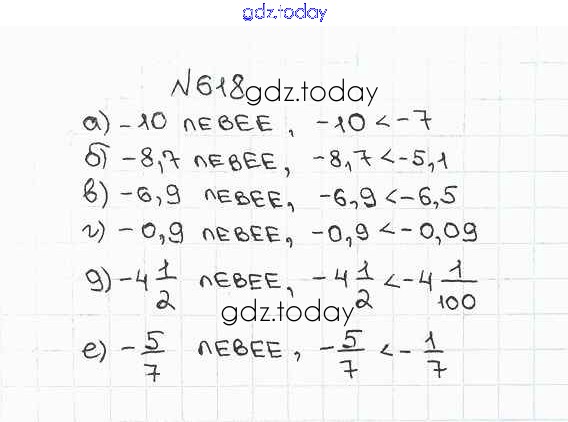 gdz.today
N618
gdz.today
а) -10 ЛЕВЕЕ, -10 < -7
б) -8,7 ЛЕВЕЕ, -8,7 < -5,1
в) -6,9 ЛЕВЕЕ, -6,9 < -6,5
г) -0,9 ЛЕВЕЕ, -0,9 < -0,09
д) -4 1/2 ЛЕВЕЕ, -4 1/2 < -4 1/100
gdz.today
е) -5/7 ЛЕВЕЕ, -5/7 < -1/7